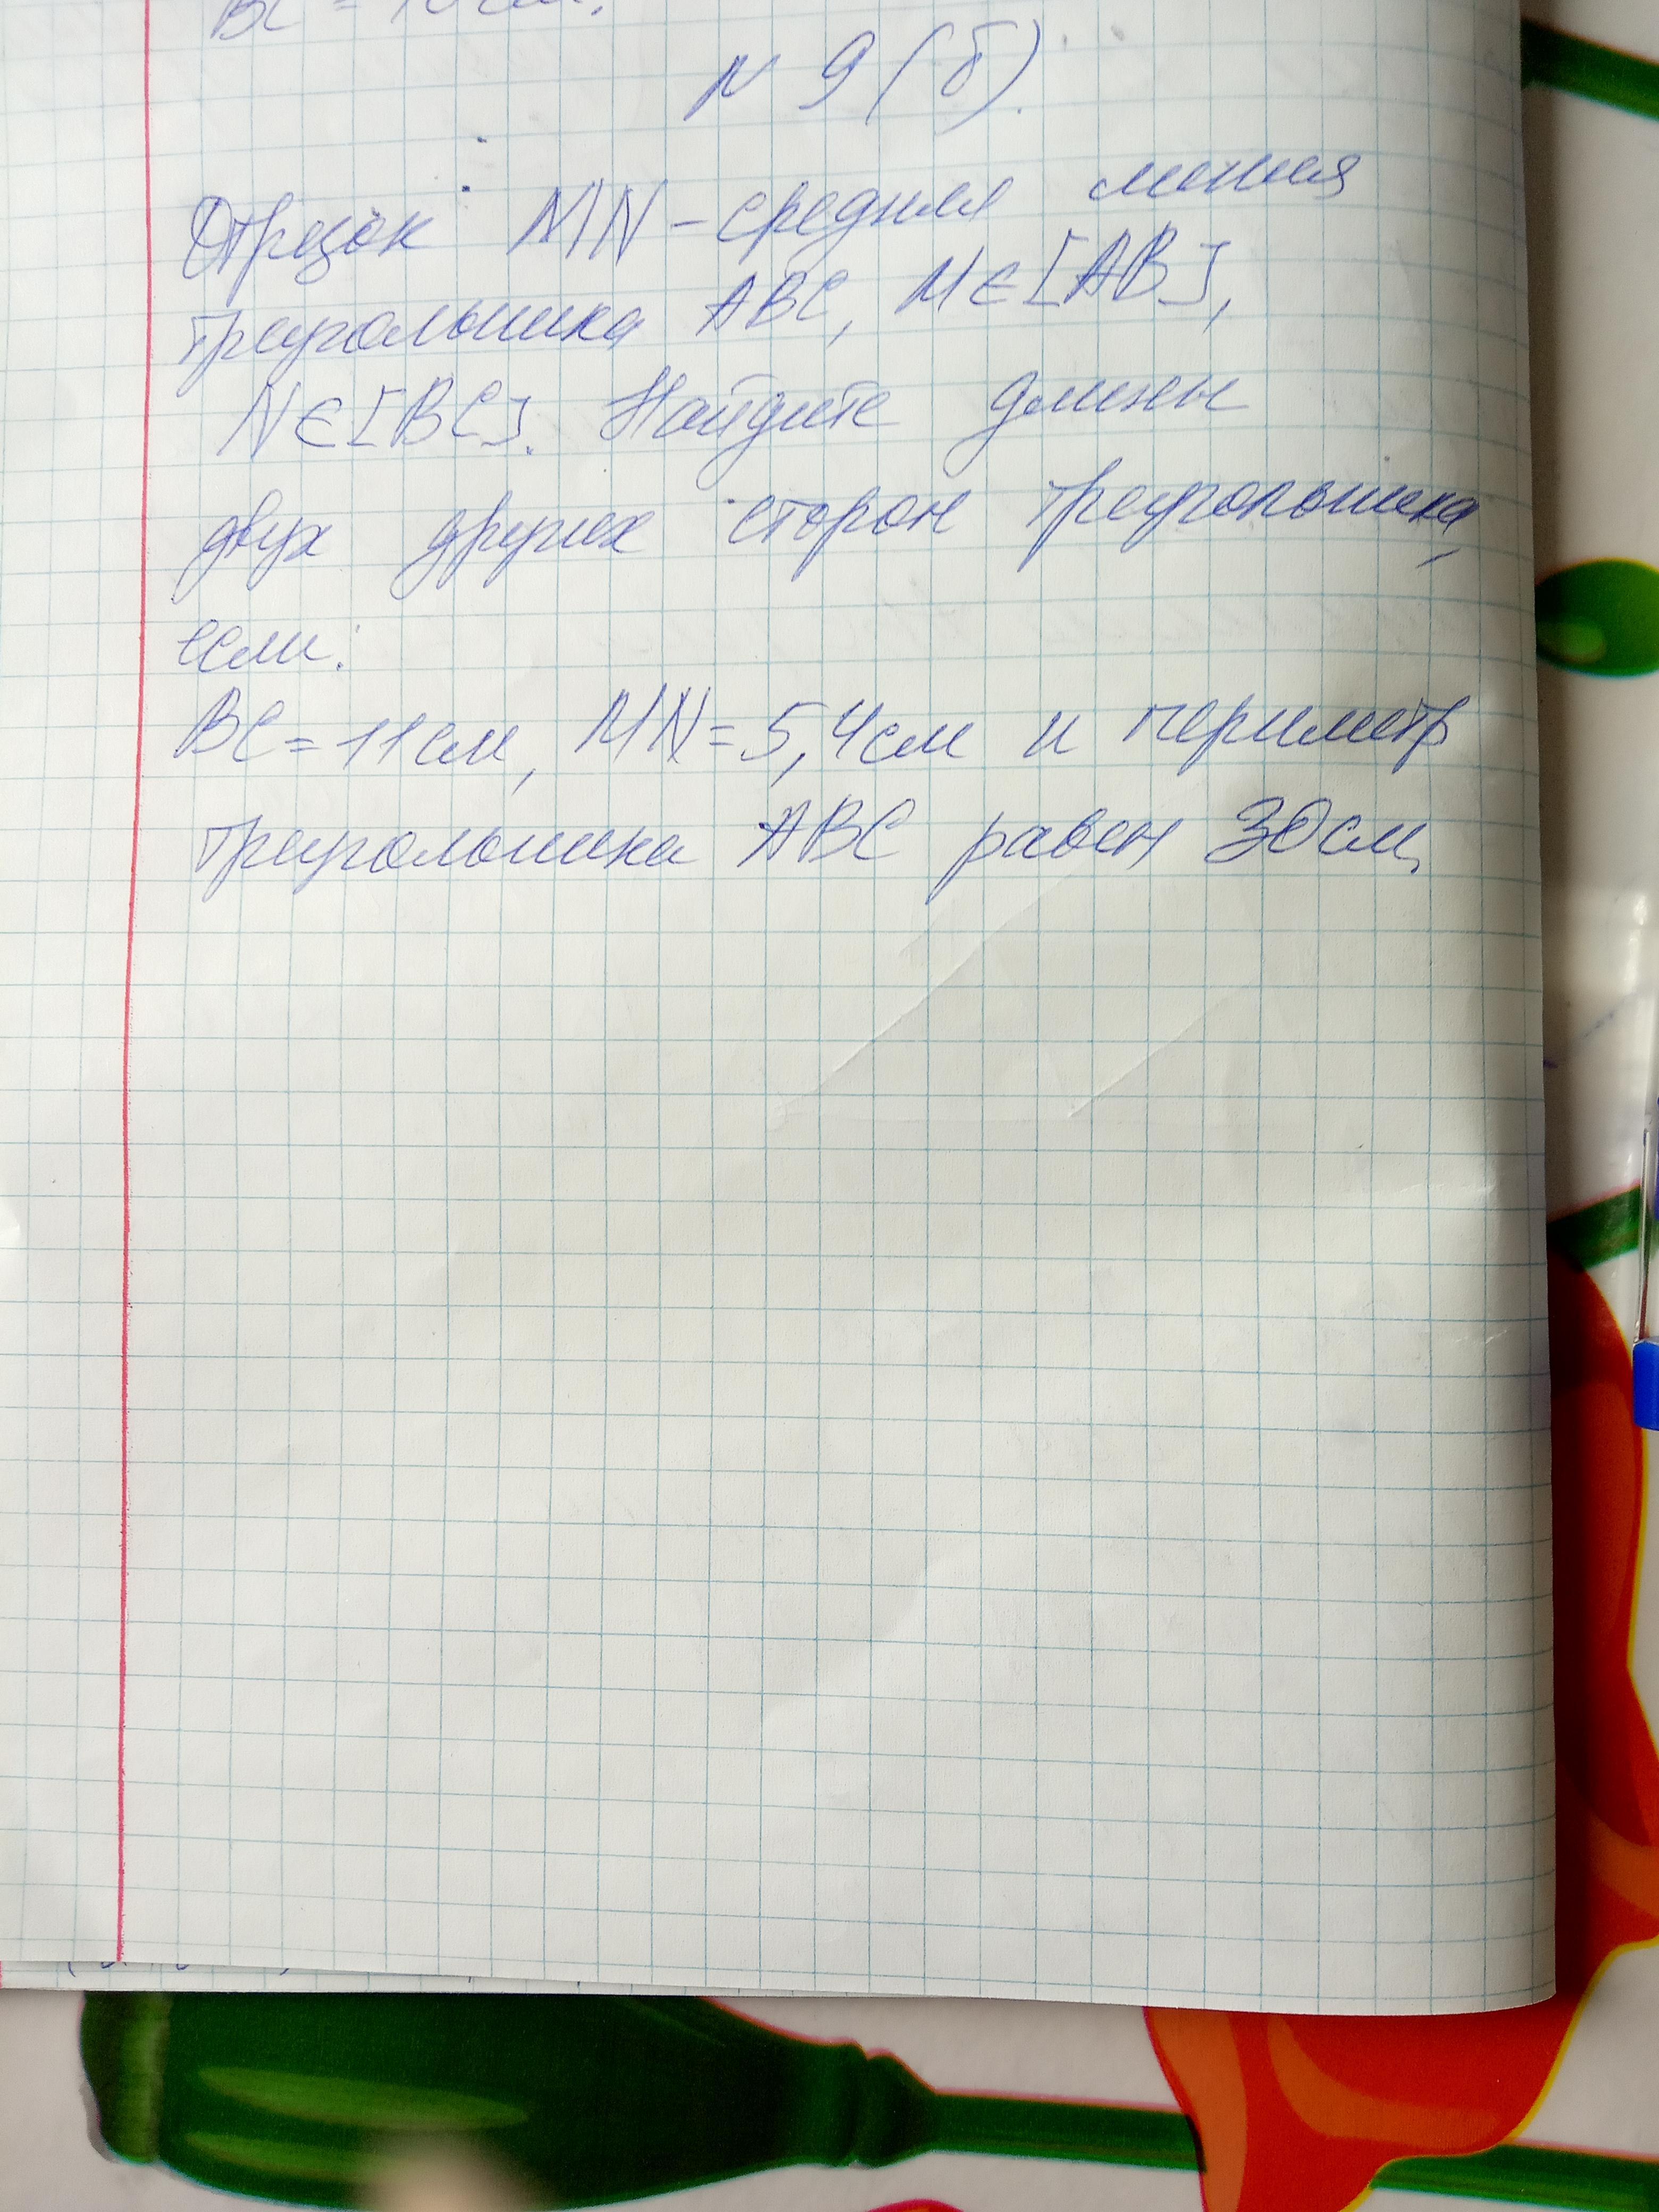 N 9 (б).
Отрезок MN - средняя линия
треугольника ABC, M ∈ [AB],
N ∈ [BC]. Найдите длины
двух других сторон треугольника,
если:
BC = 11 см, MN = 5,4 см и периметр
треугольника ABC равен 30 см.